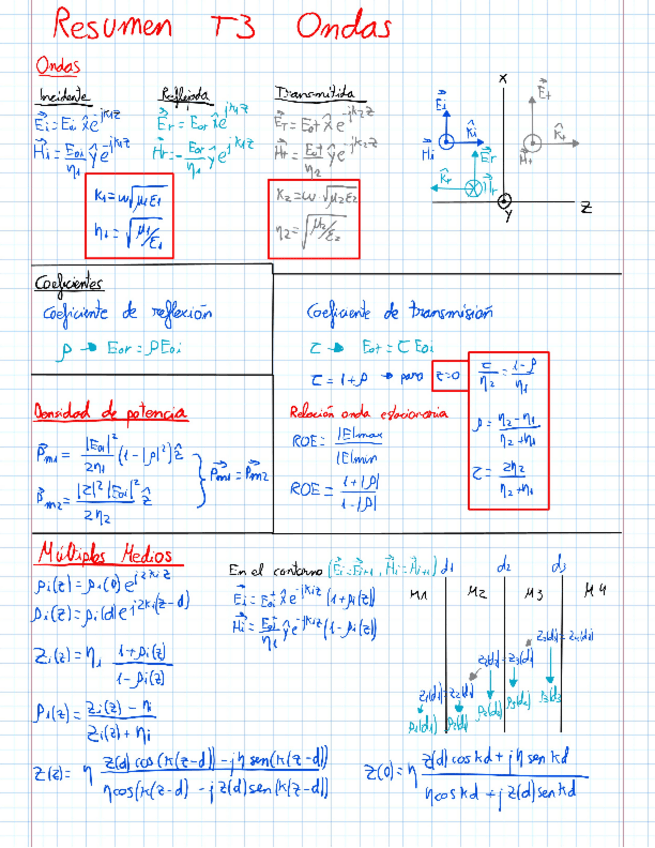 Resumen T3 Ondas
Ondas
Incidente Reflejada Transmitida
E⃗i = Eoi x̂ e^-jk1z E⃗r = Eor x̂ e^jk1z E⃗T = Eot x̂ e^-jk2z
H⃗i = Eoi/η1 ŷ e^-jk1z H⃗r = -Eor/η1 ŷ e^jk1z H⃗T = Eot/η2 ŷ e^-jk2z
K1 = ω√μ1ε1 K2 = ω·√μ2ε2
η1 = √μ1/ε1 η2 = √μ2/ε2
X
E⃗i E⃗t
H⃗i K̂i E⃗r H⃗t K̂t
K̂r H⃗r
Y Z
Coeficientes
Coeficiente de reflexión Coeficiente de transmisión
ρ → Eor = ρEoi τ → Eot = τ Eoi
τ = 1+ρ → para z=0 τ/η2 = 1-ρ/η1
ρ = η2-η1/η2+η1
τ = 2η2/η2+η1
Densidad de potencia
P⃗m1 = |Eoi|²/2η1 (1-|ρ|²) ẑ
P⃗m2 = |τ|² |Eoi|²/2η2 ẑ
P⃗m1 = P⃗m2
Relación onda estacionaria
ROE = |E|max/|E|min
ROE = 1+|ρ|/1-|ρ|
Múltiples Medios
ρi(z) = ρi(0) e^j2kiz
ρi(z) = ρi(d) e^j2ki(z-d)
Zi(z) = ηi 1+ρi(z)/1-ρi(z)
ρi(z) = Zi(z) - ηi/Zi(z) + ηi
En el contorno (E⃗i = E⃗i+1, H⃗i = H⃗i+1)
E⃗i = Eoi⁺ x̂ e^-jkiz (1+ρi(z))
H⃗i = Eoi⁺/ηi ŷ e^-jkiz (1-ρi(z))
d1 d2 d3
M1 M2 M3 M4
Z3(d3) = Z4(d3)
Z2(d2) = Z3(d2)
Z1(d1) = Z2(d1) ρ2(d2) ρ3(d2) ρ3(d3)
ρ1(d1) ρ2(d1)
Z(z) = η Z(d) cos(k(z-d)) - jη sen(k(z-d))/η cos(k(z-d)) - j Z(d) sen(k(z-d))
Z(0) = η Z(d) cos kd + jη sen kd/η cos kd + j Z(d) sen kd